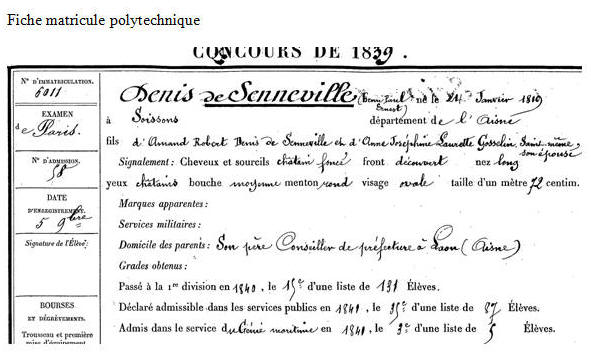 Fiche matricule polytechnique
CONCOURS DE 1839.
N° D'IMMATRICULATION.
6011
EXAMEN
de Paris.
N° D'ADMISSION.
58
DATE
D'ENREGISTREMENT.
5 9bre
Signature de l'Élève:
BOURSES
ET DÉGRÈVEMENTS.
Trousseau et première
mise d'équipement
Denis de Senneville (Henri Paul Ernest) né le 24 Janvier
à Soissons département de l'Aisne
fils d'Amand Robert Denis de Senneville et d'Anne Joséphine Laurette Gosselin, son épouse
Signalement: Cheveux et sourcils châtain foncé front découvert nez long
yeux châtains bouche moyenne menton rond visage ovale taille d'un mètre 72 centim.
Marques apparentes:
Services militaires:
Domicile des parents: Son père Conseiller de préfecture à Laon (Aisne)
Grades obtenus:
Passé à la 1re division en 1840, le 15e d'une liste de 131 Élèves.
Déclaré admissible dans les services publics en 1841, le 35e d'une liste de 87 Élèves.
Admis dans le service du Génie maritime en 1841, le 3e d'une liste de 5 Élèves.